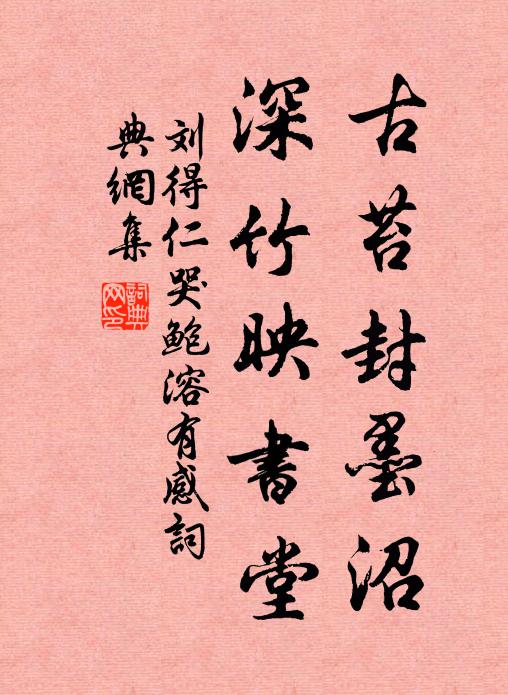 古苔封墨沼
深竹映書堂
刘得仁哭鲍溶有感詞
典網集
詞典网印